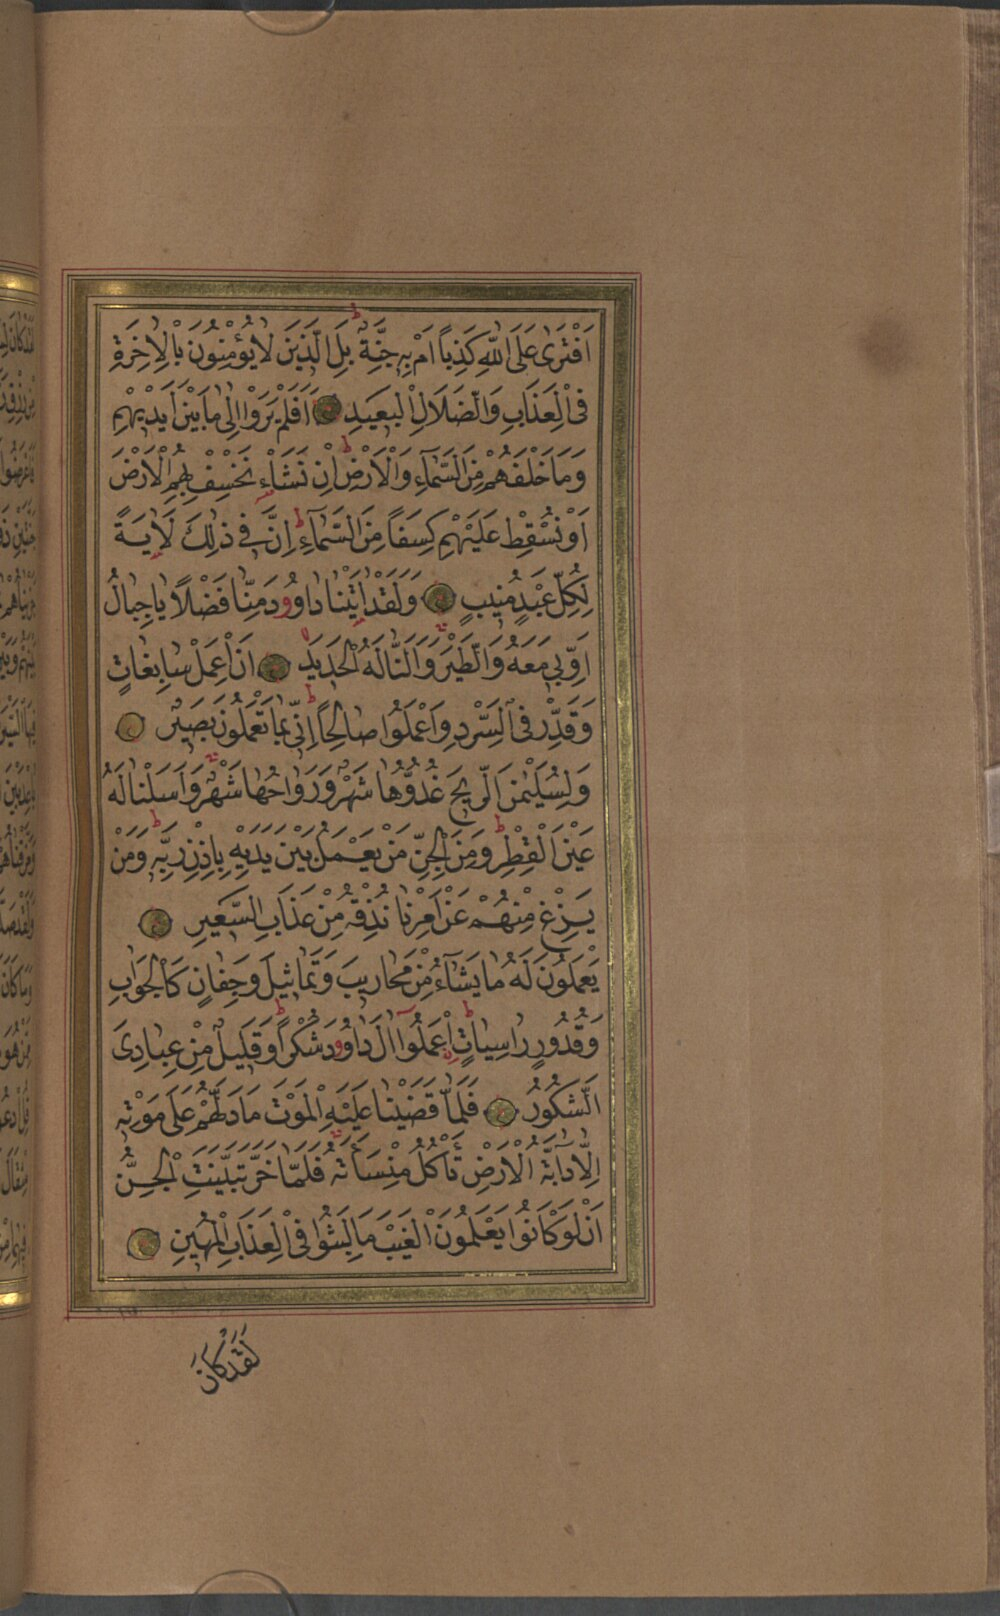 اَفْتَرٰى عَلَى اللّٰهِ كَذِباً اَمْ بِهٖ جِنَّةٌ بَلِ الَّذٖينَ لَا يُؤْمِنُونَ بِالْاٰخِرَةِ
فِى الْعَذَابِ وَالضَّلَالِ الْبَعٖيدِ اَفَلَمْ يَرَوْا اِلٰى مَا بَيْنَ اَيْدٖيهِمْ
وَمَا خَلْفَهُمْ مِنَ السَّمَٓاءِ وَالْاَرْضِ اِنْ نَشَاْ نَخْسِفْ بِهِمُ الْاَرْضَ
اَوْ نُسْقِطْ عَلَيْهِمْ كِسَفًا مِنَ السَّمَٓاءِ اِنَّ فٖى ذٰلِكَ لَاٰيَةً
لِكُلِّ عَبْدٍ مُنٖيبٍ وَلَقَدْ اٰتَيْنَا دَاوُودَ مِنَّا فَضْلًا يَا جِبَالُ
اَوِّبٖى مَعَهُ وَالطَّيْرَ وَاَلَنَّا لَهُ الْحَدٖيدَ اَنِ اعْمَلْ سَابِغَاتٍ
وَقَدِّرْ فِى السَّرْدِ وَاعْمَلُوا صَالِحًا اِنّٖى بِمَا تَعْمَلُونَ بَصٖيرٌ
وَلِسُلَيْمٰنَ الرّٖيحَ غُدُوُّهَا شَهْرٌ وَرَوَاحُهَا شَهْرٌ وَاَسَلْنَا لَهُ
عَيْنَ الْقِطْرِ وَمِنَ الْجِنِّ مَنْ يَعْمَلُ بَيْنَ يَدَيْهِ بِاِذْنِ رَبِّهٖ وَمَنْ
يَزِغْ مِنْهُمْ عَنْ اَمْرِنَا نُذِقْهُ مِنْ عَذَابِ السَّعٖيرِ
يَعْمَلُونَ لَهُ مَا يَشَٓاءُ مِنْ مَحَارٖيبَ وَتَمَاثٖيلَ وَجِفَانٍ كَالْجَوَابِ
وَقُدُورٍ رَاسِيَاتٍ اِعْمَلُوا اٰلَ دَاوُودَ شُكْرًا وَقَلٖيلٌ مِنْ عِبَادِىَ
الشَّكُورُ فَلَمَّا قَضَيْنَا عَلَيْهِ الْمَوْتَ مَا دَلَّهُمْ عَلٰى مَوْتِهٖ
اِلَّا دَٓابَّةُ الْاَرْضِ تَاْكُلُ مِنْسَاَتَهُ فَلَمَّا خَرَّ تَبَيَّنَتِ الْجِنُّ
اَنْ لَوْ كَانُوا يَعْلَمُونَ الْغَيْبَ مَا لَبِثُوا فِى الْعَذَابِ الْمُهٖينِ
لَقَدْ كَانَ